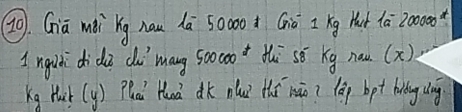 10. Giã mỗi kg rau là 50000đ Giá 1 kg thịt là 200000đ
1 người đi chợ chỉ mang 500000đ thì số kg rau (x)
kg thịt (y) Phải thoả đk như thế nào ? lập bpt tương ứng.